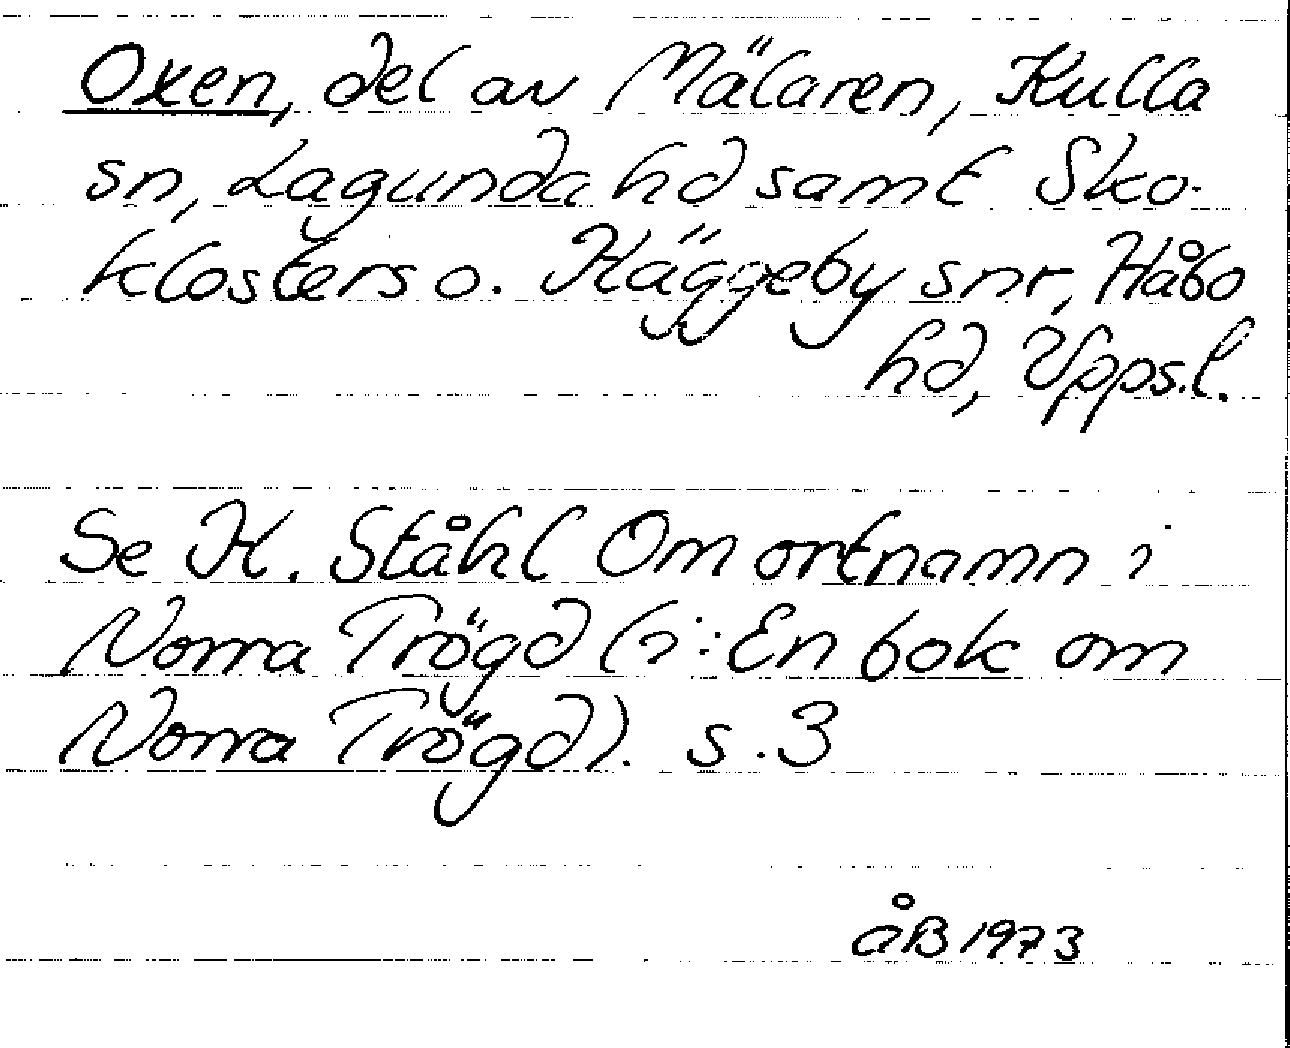 Oxen, del av Mälaren, Kulla
sn, Lagunda hd samt Sko-
klosters o. Häggeby snr, Håbo
hd, Upps.l.
Se H. Ståhl Om ortnamn i
Norra Trögd (i: En bok om
Norra Trögd). s. 3
åB 1973